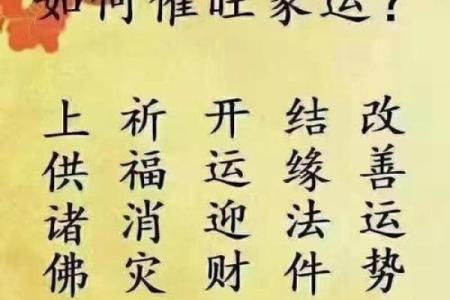 如何催旺家运？
上供诸佛
祈福消灾
开运迎财
结缘法件
改善运势